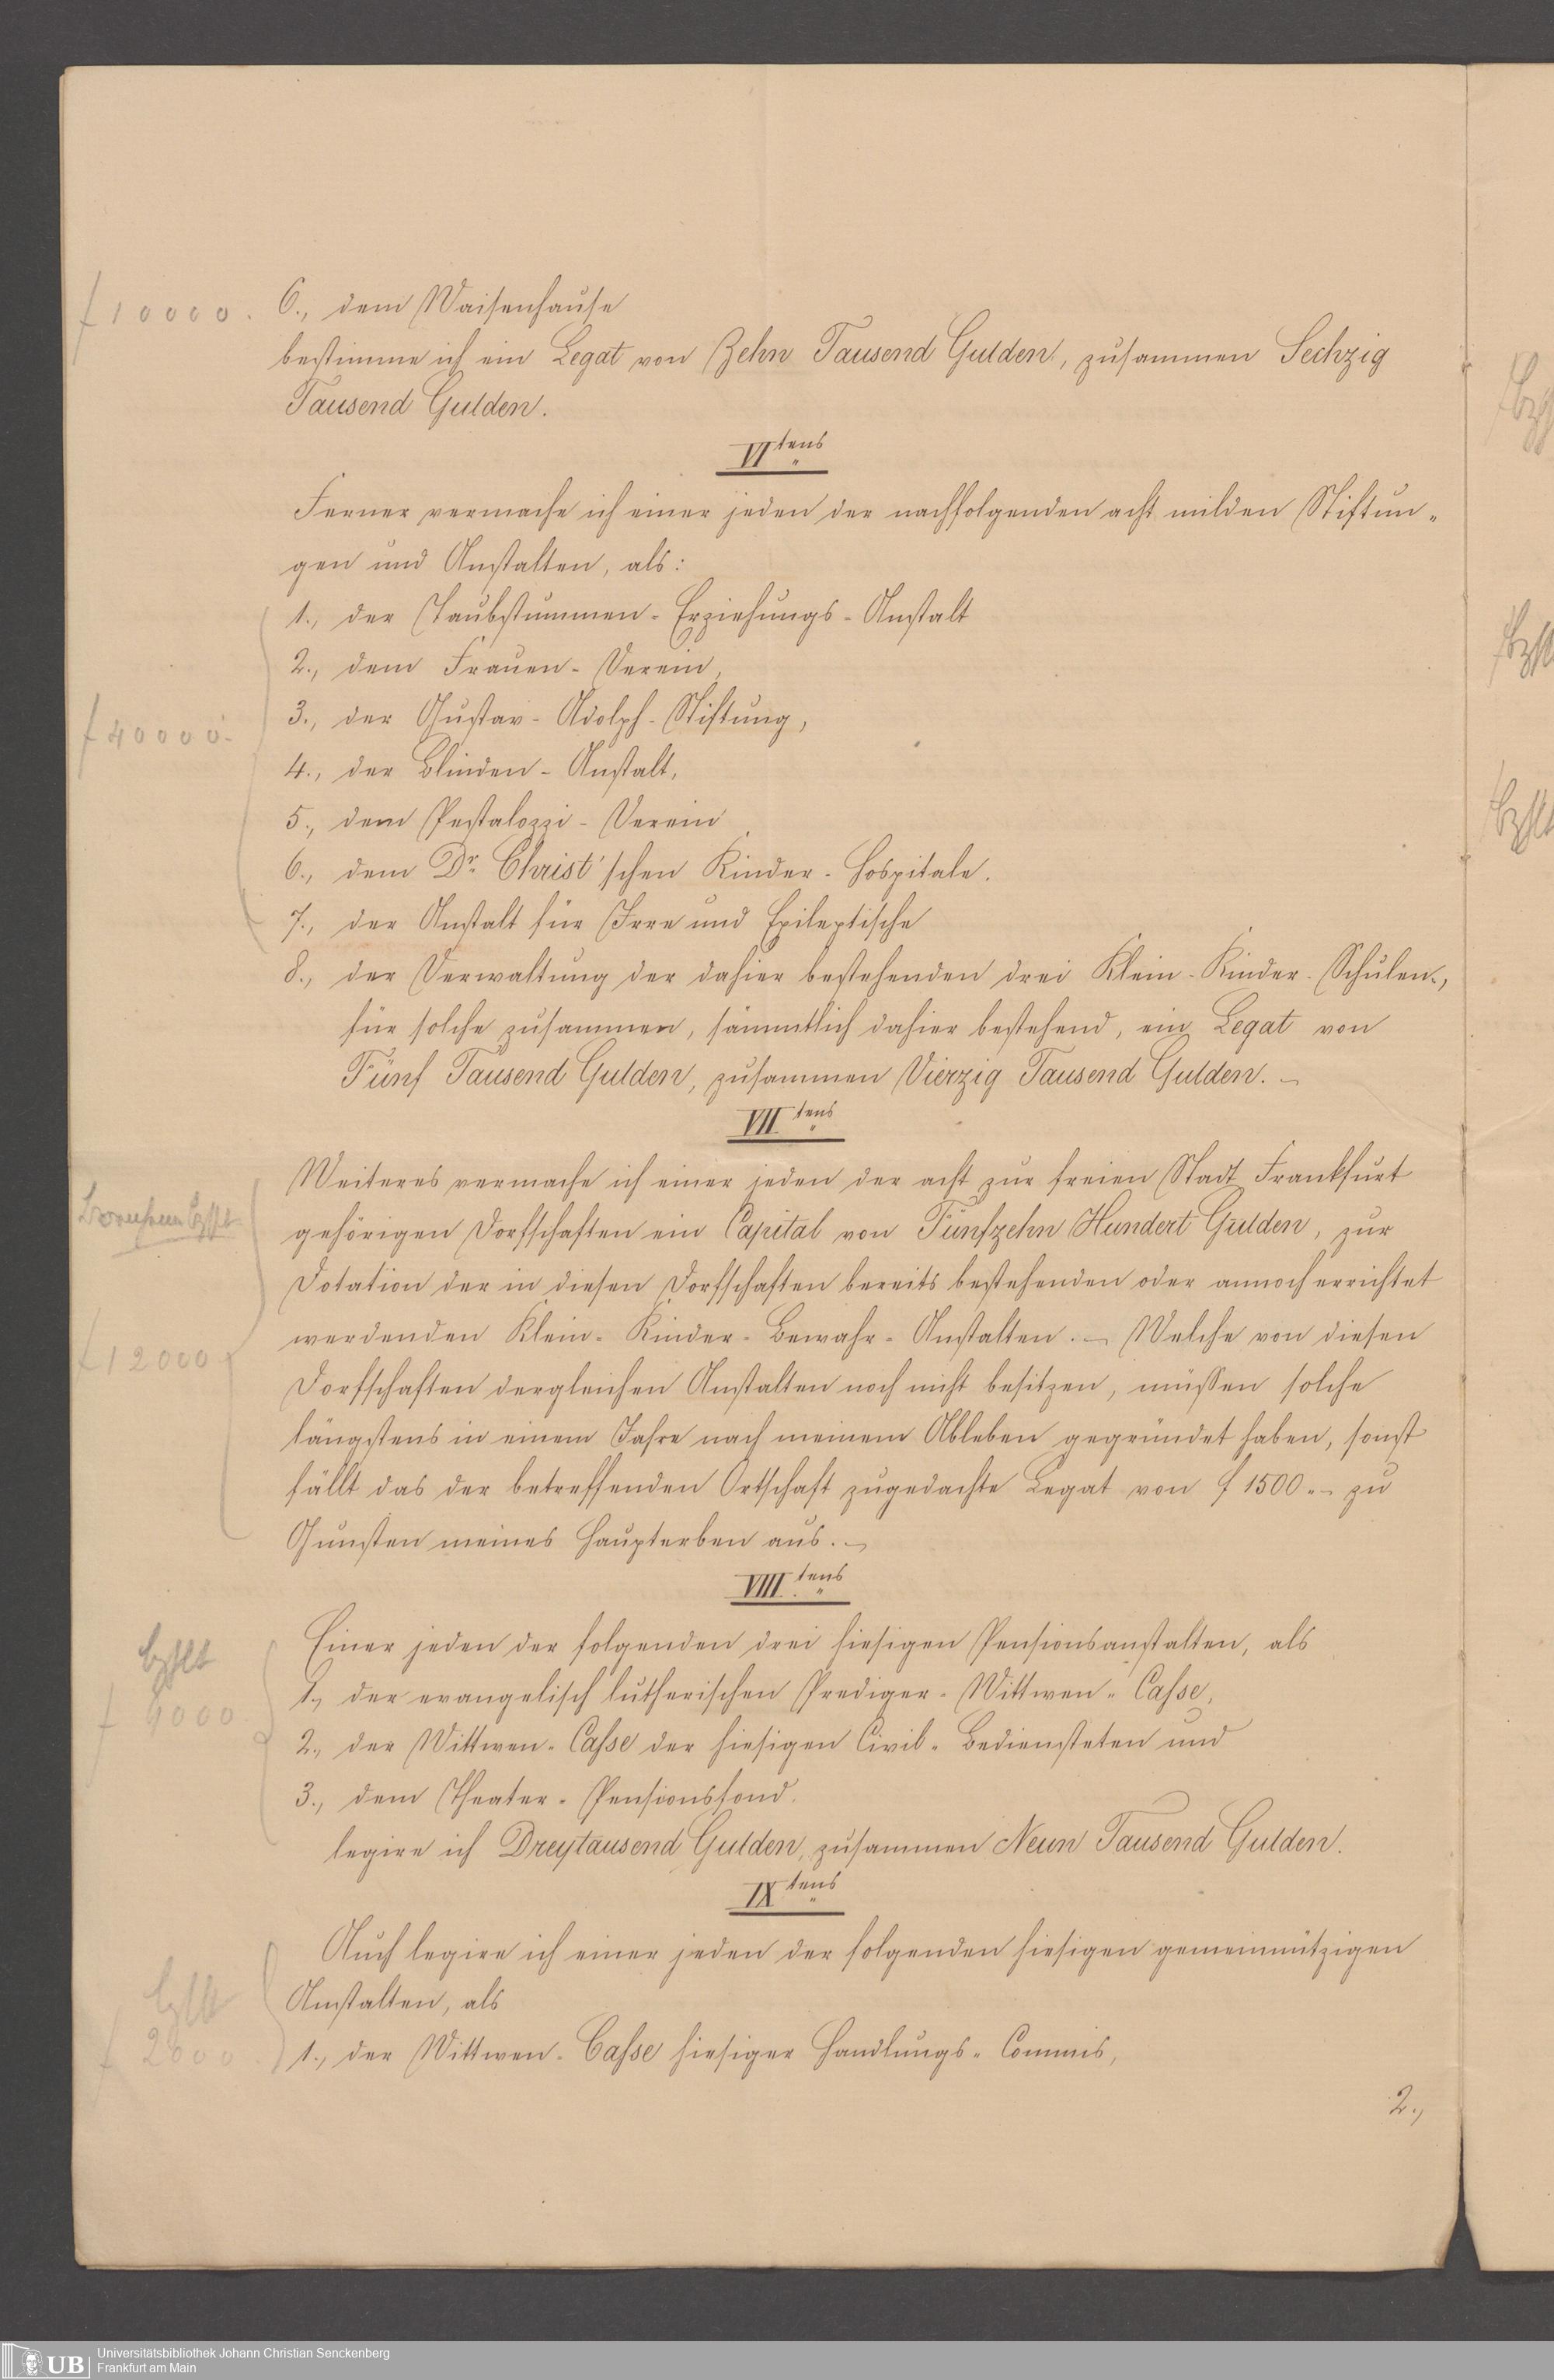 f 10000.
6., dem Waisenhause
bestimme ich ein Legat von Zehn Tausend Gulden, zusammen Sechzig
Tausend Gulden.
VItens
Ferner vermache ich einer jeden der nachfolgenden acht milden Stiftun-
gen und Anstalten, als:
1., der Taubstummen-Erziehungs-Anstalt
2., dem Frauen-Verein,
3., der Gustav-Adolph-Stiftung,
f 40000.-
4., der Blinden-Anstalt,
5., dem Pestalozzi-Verein
6., dem Dr. Christ'schen Kinder-Hospitale.
7., der Anstalt für Irre und Epileptische
8., der Verwaltung der dahier bestehenden drei Klein-Kinder-Schulen,
für solche zusammen, sämmtlich dahier bestehend, ein Legat von
Fünf Tausend Gulden, zusammen Vierzig Tausend Gulden. –
VIItens
Weiteres vermache ich einer jeden der acht zur freien Stadt Frankfurt
gehörigen Dorfschaften ein Capital von Fünfzehn Hundert Gulden, zur
Dotation der in diesen Dorfschaften bereits bestehenden oder annoch errichtet
werdenden Klein-Kinder-Bewahr-Anstalten. – Welche von diesen
f 12000
Dorfschaften dergleichen Anstalten noch nicht besitzen, müssen solche
längstens in einem Jahre nach meinem Ableben gegründet haben, sonst
fällt das der betreffenden Ortschaft zugedachte Legat von f 1500.- zu
Gunsten meines Haupterben aus. –
VIIItens
Einer jeden der folgenden drei hiesigen Pensionsanstalten, als
bzhlt
1., der evangelisch lutherischen Prediger-Wittwen-Casse,
f 9000
2., der Wittwen-Casse der hiesigen Civil-Bediensteten und
3., dem Theater-Pensionsfond.
legire ich Dreytausend Gulden, zusammen Neun Tausend Gulden.
IXtens
Auch legire ich einer jeden der folgenden hiesigen gemeinnützigen
Anstalten, als
bzhlt
1., der Wittwen-Casse hiesiger Handlungs-Commis,
2.,
Universitätsbibliothek Johann Christian Senckenberg
Frankfurt am Main
UB